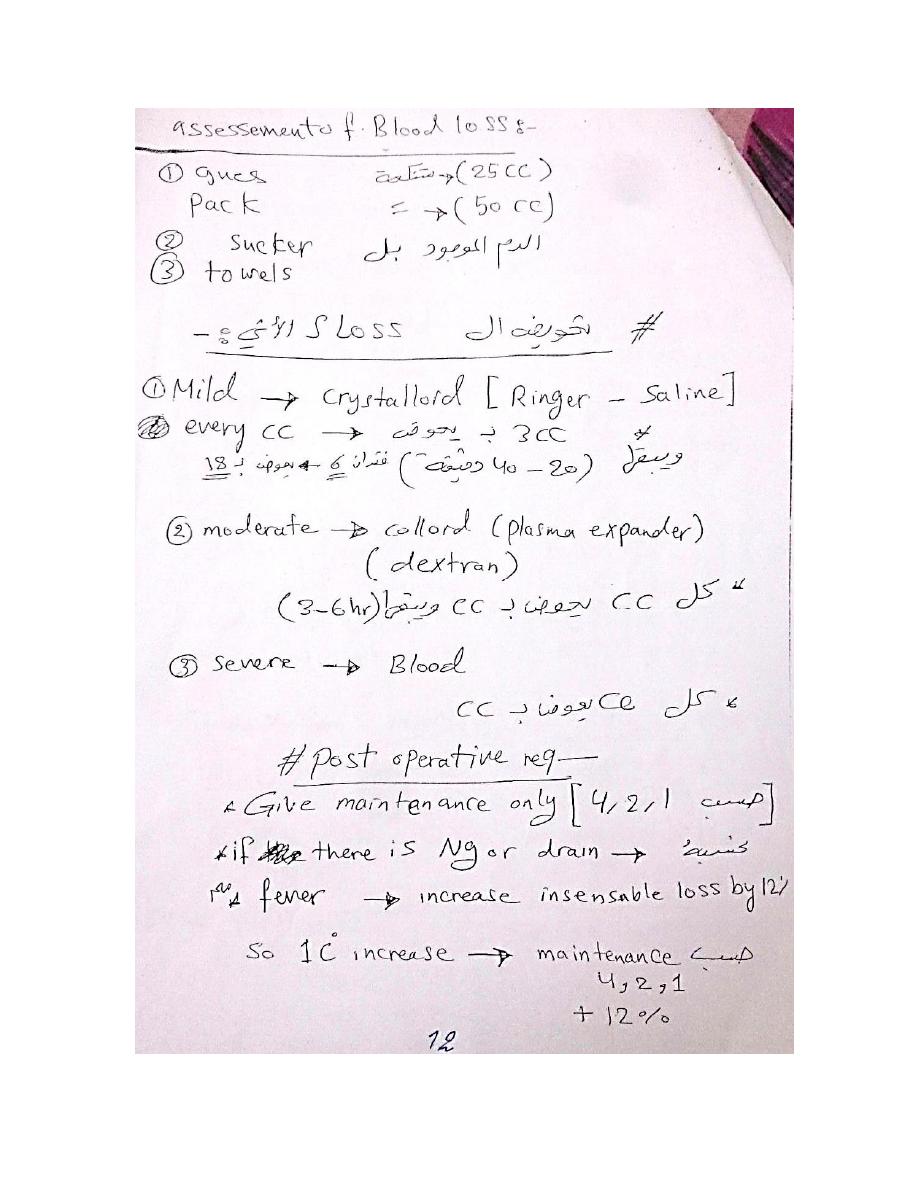 assessement of. Blood loss :-
① gues مشبعة → (25 CC)
Pack = → (50 cc)
② sucker الدم الموجود بل
③ towels
# تعويض ال Loss كالأتي :-
① Mild → crystalloid [Ringer - Saline]
every cc → يعوض ب 3 CC *
ويبقى (20 - 40 دقيقة) فقدان 6 → يعوض ب 18
② moderate → colloid (plasma expander)
(dextran)
* كل CC يعوض ب CC ويبقى (3-6hr)
③ severe → Blood
* كل CC يعوض ب CC
# post operative req
* Give maintenance only [4, 2, 1 حسب]
* if there is Ng or drain → كنسبة
* fever → increase insensable loss by 12%
So 1 C° increase → maintenance حسب
4, 2, 1
+ 12%
12